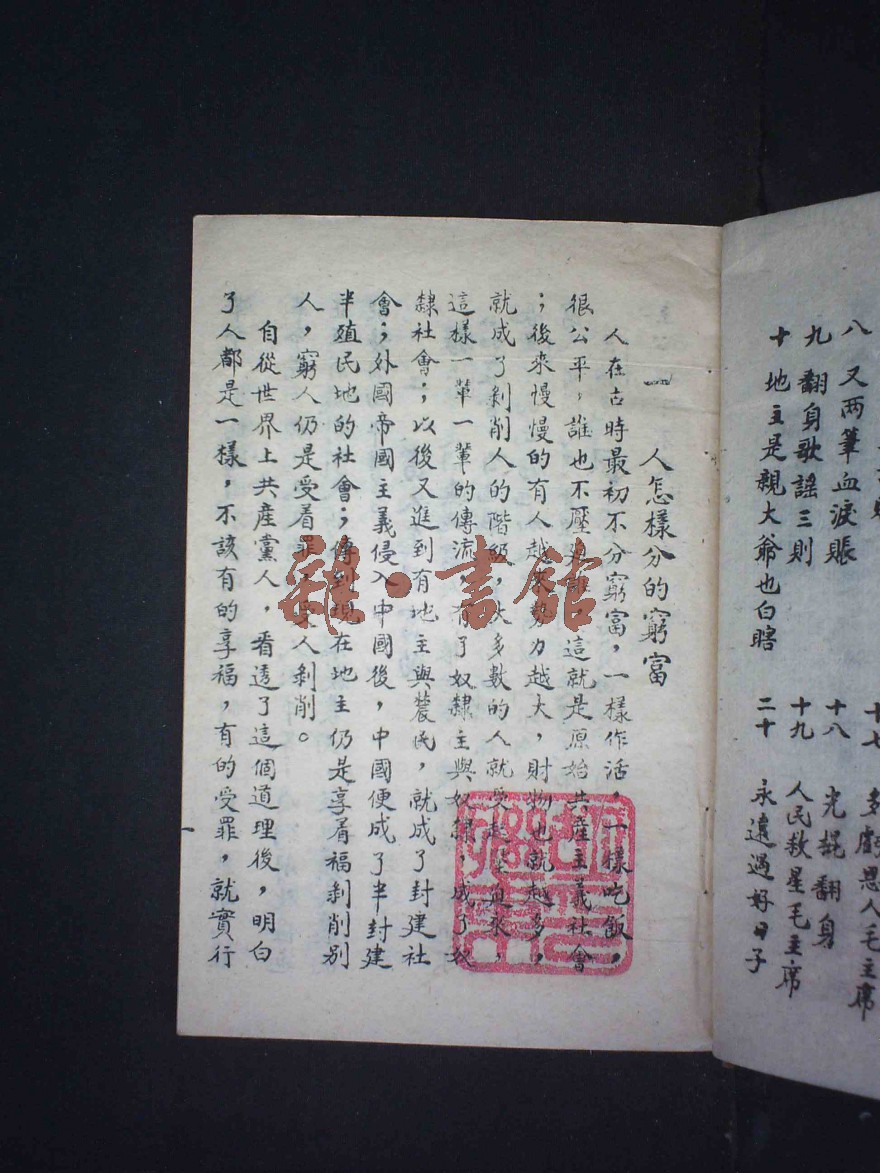 十七 多虧恩人毛主席
八 又两筆血淚賬
十八 光棍翻身
九 翻身歌謡三則
十九 人民救星毛主席
十 地主是親大爺也白瞎
二十 永遠過好日子
一 人怎樣分的窮富
人在古時最初不分窮富，一樣作活，一樣吃飯，
很公平，誰也不壓迫誰，這就是原始共產主義社會
；後來慢慢的有人越來勢力越大，財物也就越多，
就成了剝削人的階級，大多數的人就受起壓迫來，
這樣一輩一輩的傳流，有了奴隸主與奴隸，成了奴
隸社會；以後又進到有地主與農民，就成了封建社
會；外國帝國主義侵入中國後，中國便成了半封建
半殖民地的社會；傳到現在地主仍是享着福剝削别
人，窮人仍是受着罪，受人剝削。
自從世界上共產黨人，看透了這個道理後，明白
了人都是一樣，不該有的享福，有的受罪，就實行
一
雜·書館